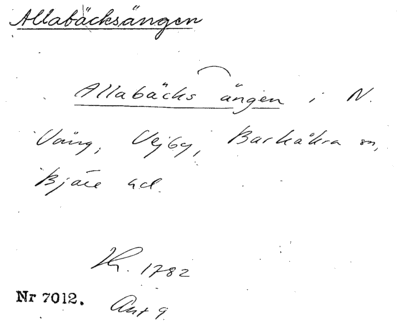 Allabäcksängen
Allabäcks ängen i N.
Vång, Vejby, Barkåkra sn,
Bjäre hd.
Kr. 1782
Nr 7012. Akt 9